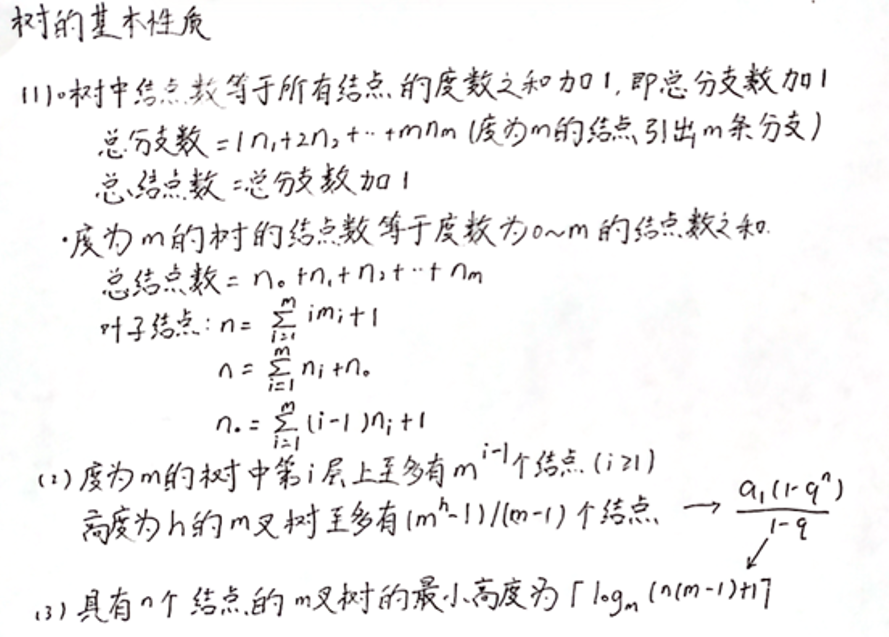 树的基本性质
(1)。树中结点数等于所有结点的度数之和加1,即总分支数加1
总分支数=1n₁+2n₂+…+mnₘ(度为m的结点引出m条分支)
总结点数=总分支数加1
·度为m的树的结点数等于度数为0~m的结点数之和.
总结点数=n₀+n₁+n₂+…+nₘ
叶子结点:n=∑ᵢ₌₁ᵐ imᵢ+1
n=∑ᵢ₌₁ᵐ nᵢ+n₀
n₀=∑ᵢ₌₁ᵐ (i-1)nᵢ+1
(2)度为m的树中第i层上至多有mⁱ⁻¹个结点(i≥1)
高度为h的m叉树至多有(mʰ-1)/(m-1)个结点 → a₁(1-qⁿ)/(1-q)
↙
(3)具有n个结点的m叉树的最小高度为⌈logₘ(n(m-1)+1⌉